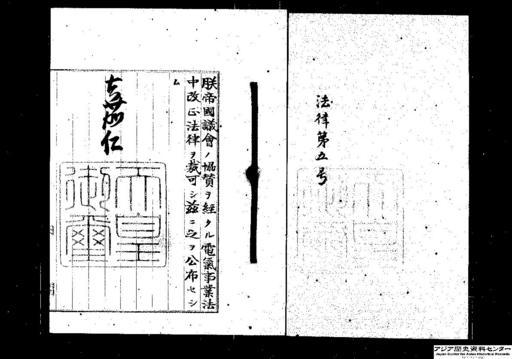 法律第五号
朕帝國議會ノ協賛ヲ経タル電氣事業法
中改正法律ヲ裁可シ茲ニ之ヲ公布セシ
ム
嘉仁
天皇
御璽
アジア歴史資料センター
Japan Center for Asian Historical Records